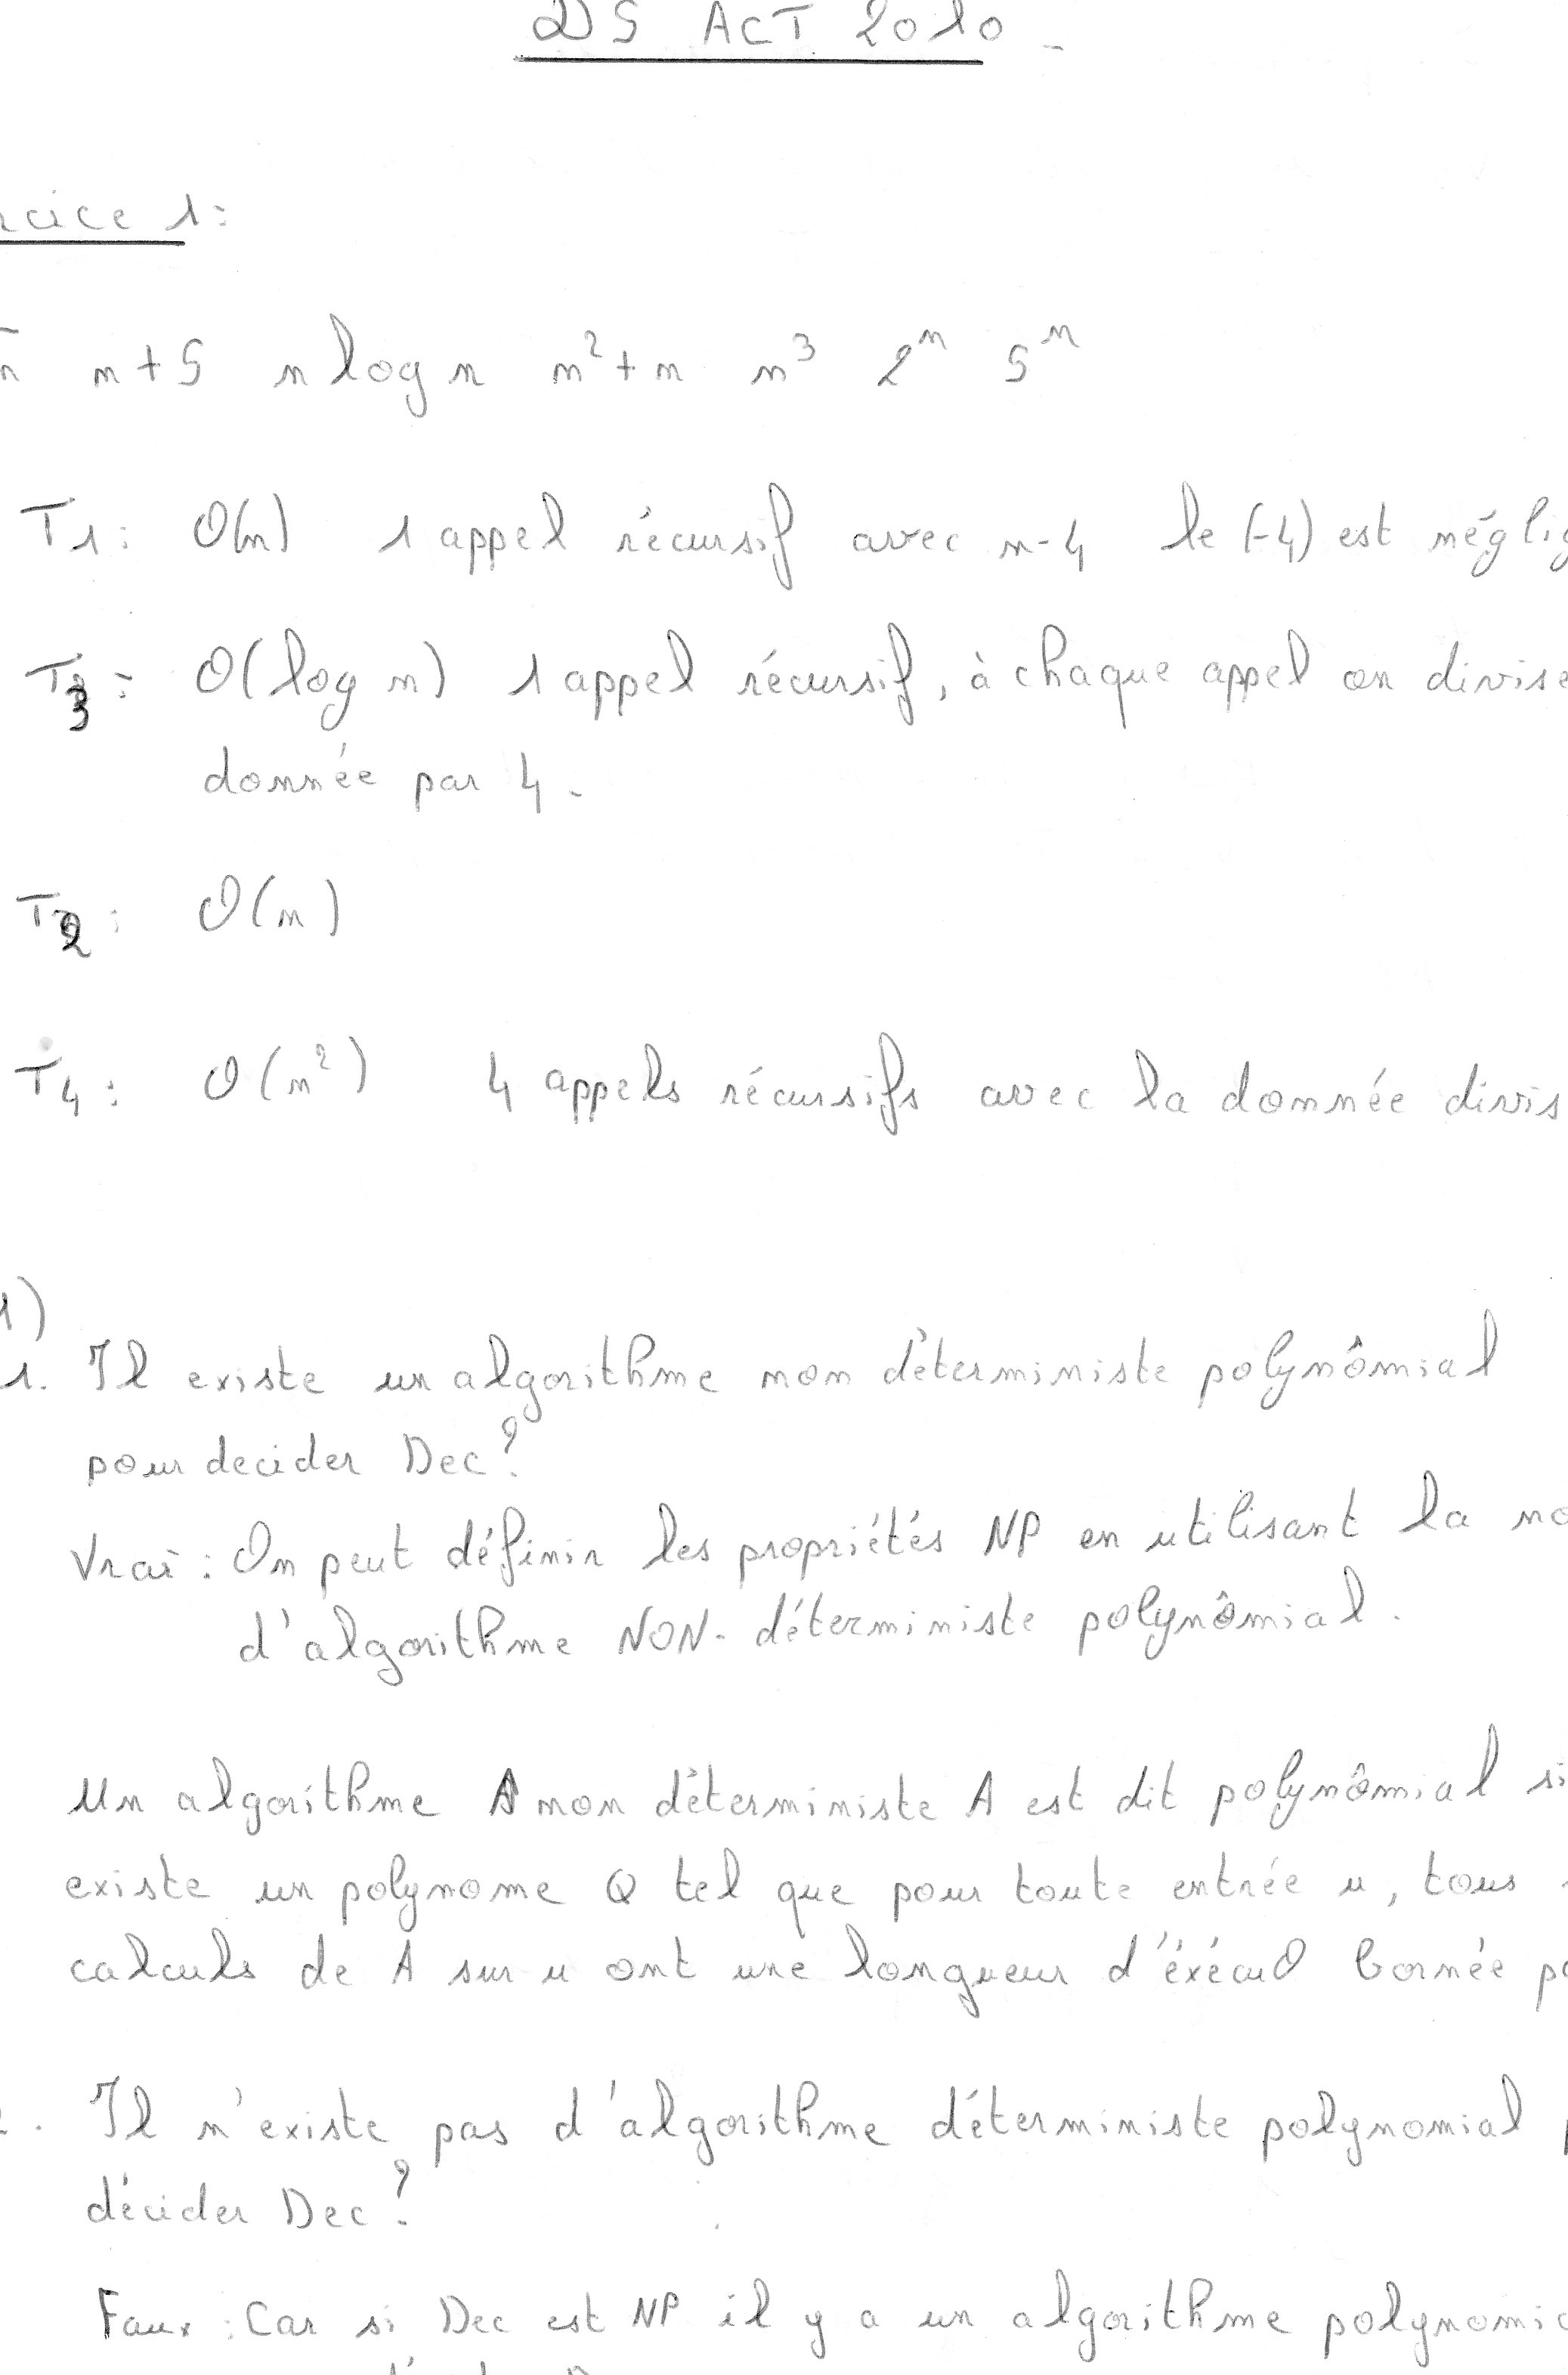 DS ACT 2010 -
rcice 1:
n n+5 n log n n²+n n³ 2ⁿ 5ⁿ
T1: O(n) 1 appel récursif avec n-4 le (-4) est néglig
T3: O(log n) 1 appel récursif, à chaque appel on divise
donnée par 4 -
T2: O(n)
T4: O(n²) 4 appels récursifs avec la donnée divis
1)
1. Il existe un algorithme non déterministe polynômial
pour decider Dec?
Vrai : On peut définir les propriétés NP en utilisant la no
d'algorithme NON-déterministe polynômial.
Un algorithme A non déterministe A est dit polynômial si
existe un polynome Q tel que pour toute entrée u, tous
calculs de A sur u ont une longueur d'éxécuO bornée pa
. Il n'existe pas d'algorithme déterministe polynomial p
décider Dec?
Faux : Car si Dec est NP il y a un algorithme polynomia